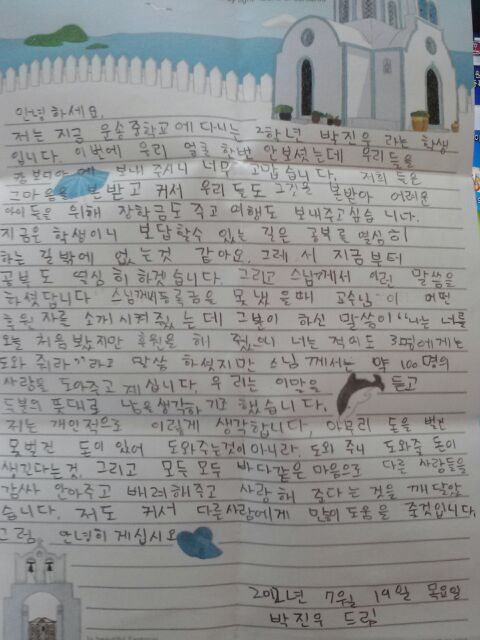 안녕하세요,
저는 지금 운송중학교에 다니는 2학년 박진우 라는 학생
입니다. 이번에 우리 얼굴 한번 안보셨는데 우리들을
캄보디아 에 보내 주시니 너무 고맙습니다. 저희 들은
그마음을 본받고 커서 우리들도 그것을 본받아 어려운
아이들을 위해 장학금도 주고 여행도 보내주고싶습니다.
지금은 학생이니 보답할수 있는 길은 공부를 열심히
하는 길밖에 없는것 같아요. 그래서 지금부터
공부도 열심히 하겠습니다. 그리고 스님께서 이런 말씀을
하셨답니다 스님께서등록금을 못 냈을때 교수님이 어떤
후원자를 소개시켜줬는데 그분이 하신 말씀이 "나는 너를
오늘 처음봤지만 후원을 해 줬으니 너는 적어도 3명에게는
도와 줘라" 라고 말씀 하셨지만 스님께서는 약 100명의
사람을 도와주고 계십니다. 우리는 이말을 듣고
두분의 뜻대로 남을생각하기로했습니다.
저는 개인적으로 이렇게 생각합니다, 아무리 돈을 벌던
못벌건 돈이 있어 도와주는것이아니라. 도와 주니 도와줄 돈이
생긴다는것, 그리고 모두 모두 바다같은 마음으로 다른 사람들을
감싸 안아주고 배려해주고 사랑 해 준다는 것을 깨달았
습니다. 저도 커서 다른사람에게 많이도움을 줄것입니다.
그럼, 안녕히 계십시오
2012년 7월 19일 목요일
박진우 드림